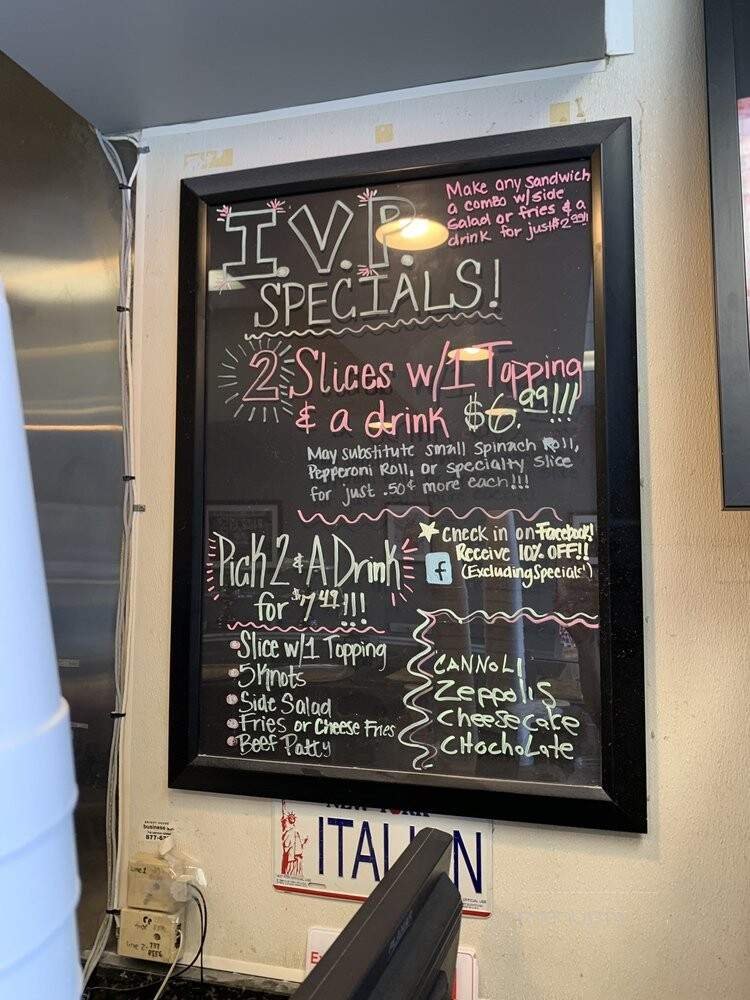 I.V.P.
SPECIALS!
Make any Sandwich
a combo w/side
Salad or fries & a
drink for just $2.99!!
2 Slices w/1 Topping
& a drink $6.99!!!
May substitute small Spinach Roll,
Pepperoni Roll, or specialty slice
for just .50¢ more each!!!
Pick 2 & A Drink
for $7.49!!!
Slice w/1 Topping
5 Knots
Side Salad
Fries or Cheese Fries
Beef Patty
Check in on Facebook!
Receive 10% OFF!!
f (Excluding Specials!)
CANNOLI
Zeppolis
Cheesecake
CHochoLate
ITALI N
Line 1
Line 2